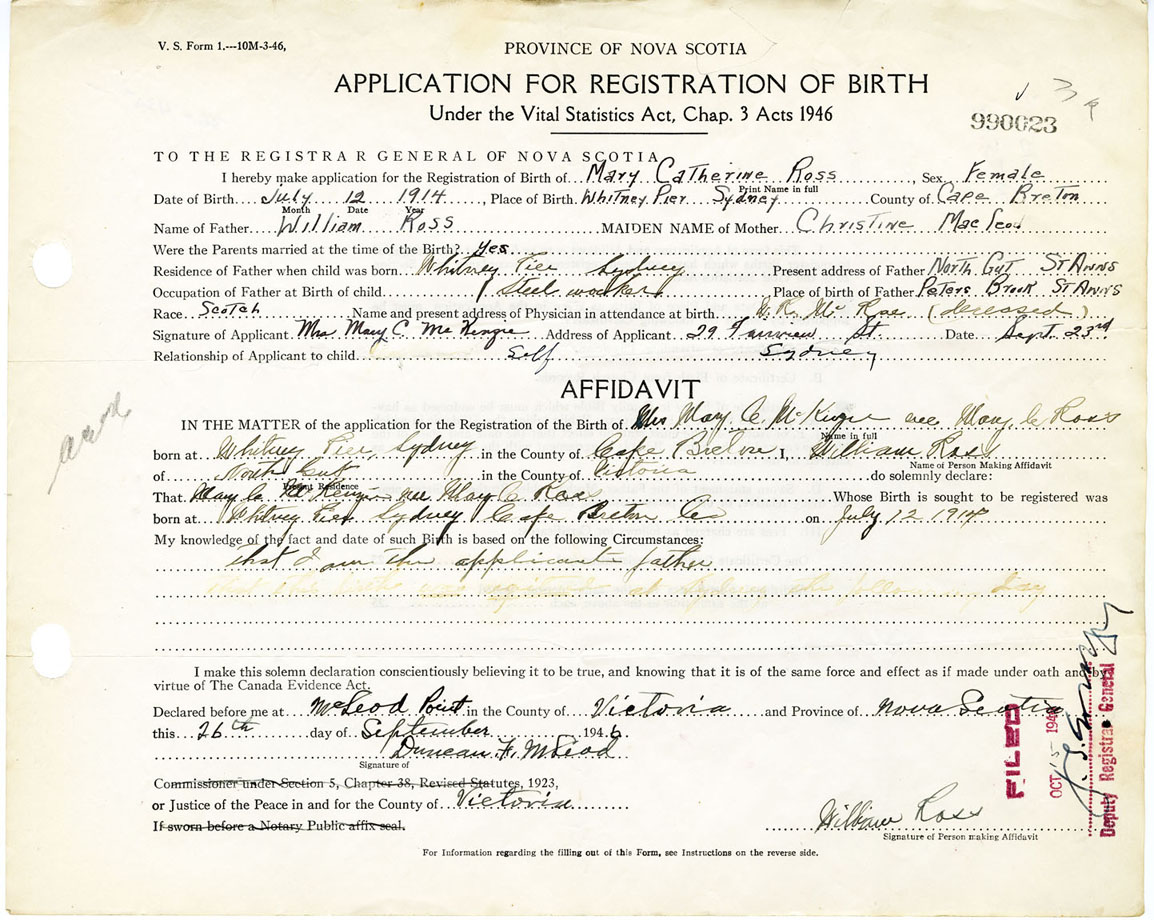 V. S. Form 1.---10M-3-46,
PROVINCE OF NOVA SCOTIA
APPLICATION FOR REGISTRATION OF BIRTH
Under the Vital Statistics Act, Chap. 3 Acts 1946
990023
TO THE REGISTRAR GENERAL OF NOVA SCOTIA
I hereby make application for the Registration of Birth of Mary Catherine Ross, Sex Female
Print Name in full
Date of Birth July 12 1914, Place of Birth Whitney Pier Sydney County of Cape Breton
Month Date Year
Name of Father William Ross MAIDEN NAME of Mother Christine MacLeod
Were the Parents married at the time of the Birth? Yes
Residence of Father when child was born Whitney Pier Sydney Present address of Father North Gut St Anns
Occupation of Father at Birth of child Steel worker Place of birth of Father Peters Brook St Anns
Race Scotch Name and present address of Physician in attendance at birth Mc Rae (deceased)
Signature of Applicant Mrs Mary C McKenzie Address of Applicant 29 Fairview St. Date Sept. 23rd
Relationship of Applicant to child Self Sydney
AFFIDAVIT
IN THE MATTER of the application for the Registration of the Birth of Mrs Mary C. McKenzie nee Mary C Ross
Name in full
born at Whitney Pier Sydney in the County of Cape Breton I, William Ross
Name of Person Making Affidavit
of North Gut in the County of Victoria do solemnly declare:
Present Residence
That Mary C McKenzie nee Mary C Ross Whose Birth is sought to be registered was
born at Whitney Pier Sydney Cape Breton Co on July 12 1914
My knowledge of the fact and date of such Birth is based on the following Circumstances:
that I am the applicants father
that this birth was registered at Sydney the following day
I make this solemn declaration conscientiously believing it to be true, and knowing that it is of the same force and effect as if made under oath and by
virtue of The Canada Evidence Act.
Declared before me at McLeod Point in the County of Victoria and Province of Nova Scotia
this 26th day of September 1946.
Duncan F. McLeod
Signature of
Commissioner under Section 5, Chapter 38, Revised Statutes, 1923,
or Justice of the Peace in and for the County of Victoria
If sworn before a Notary Public affix seal.
William Ross
Signature of Person making Affidavit
For Information regarding the filling out of this Form, see Instructions on the reverse side.
FILED
OCT 15 1946
Deputy Registrar General